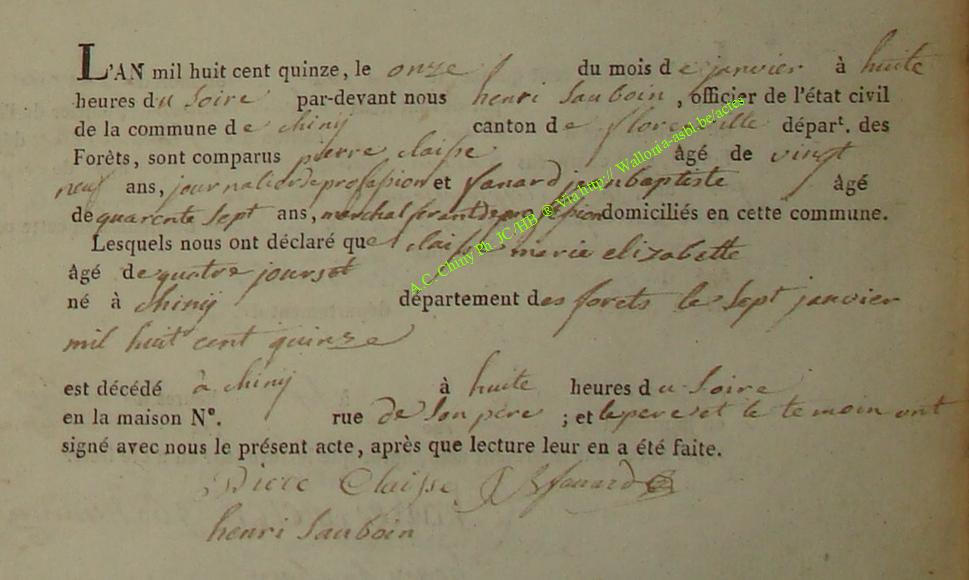 L'AN mil huit cent quinze, le onze du mois de janvier à huite
heures du Soire par-devant nous henri Sauboin, officier de l'état civil
de la commune de chinÿ canton de florenville départ. des
Forêts, sont comparus pierre claisse âgé de vingt
neuf ans, journalier de profession et fanard jean baptiste âgé
de quarente Sept ans, marchal ferant de profession domiciliés en cette commune.
Lesquels nous ont déclaré que claisse marie elizabette
âgé de quatre jours et
né à chinÿ département des forets le Sept janvier
mil huit cent quinze
est décédé à chinÿ à huite heures du Soire
en la maison N°. rue de Son père ; et le pere et le temoin ont
signé avec nous le présent acte, après que lecture leur en a été faite.
Piere Claisse JB fanard
henri Sauboin
A.C. Chiny Ph. JC/HB ® Via http://Wallonia-asbl.be/actes